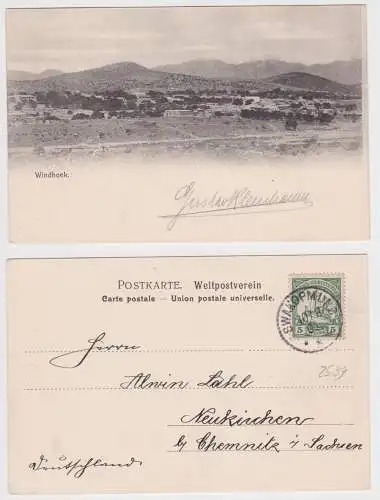 Windhoek.
Gustav Kleinhanns
POSTKARTE. Weltpostverein
Carte postale — Union postale universelle.
SWAKOPMUND
5 5
Herrn
Alwin Lahl
Neukirchen
b/ Chemnitz i/ Sachsen
Deutschland.